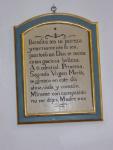 Bendita sea tu pureza
y eternamente lo sea,
pues todo un Dios se recrea
en tan graciosa belleza.
A ti celestial Princesa,
Sagrada Virgen María,
te ofrezco en este día
alma, vida y corazón.
Mírame con compasión
no me dejes, Madre mía.